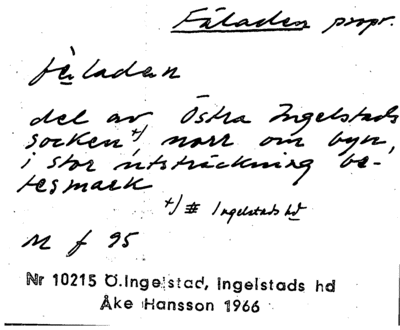 Fäladen propr.
fèladen
del av Östra Ingelstads
socken +) norr om byn,
i stor utsträckning be-
tesmark
+) # Ingelstads hd
M f 95
Nr 10215 Ö.Ingelstad, Ingelstads hd
Åke Hansson 1966